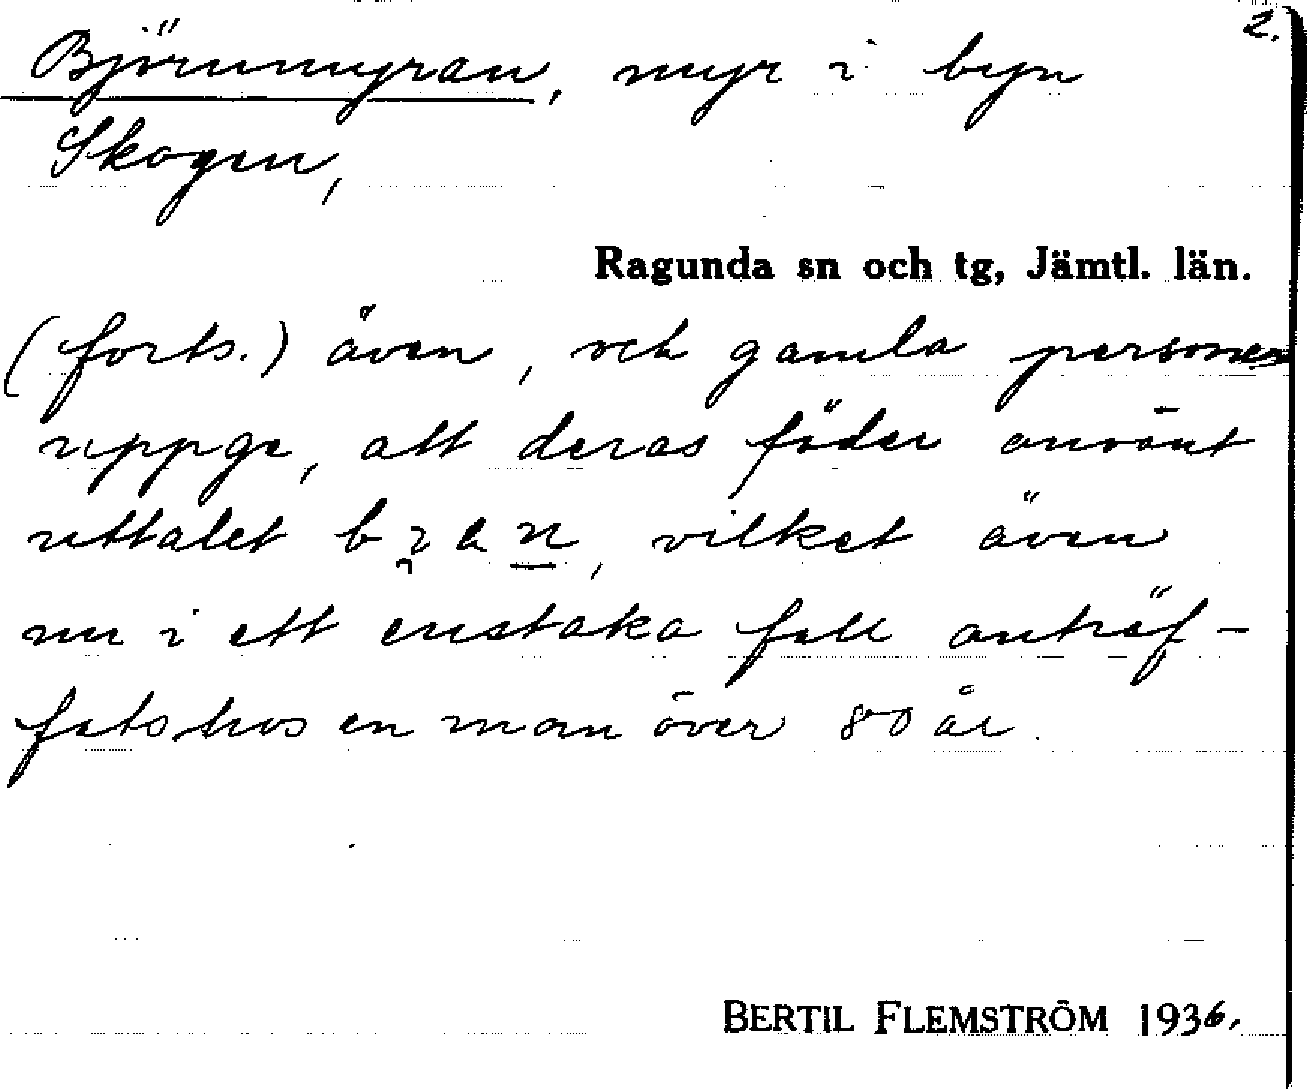 2.
Björnmyran, myr i byn
Skogen,
Ragunda sn och tg, Jämtl. län.
(forts.) även, och gamla personer
uppge, att deras föder använt
uttalet vilket även
nu i ett enstaka fall anträf-
fats hos en man över 80 år.
BERTIL FLEMSTRÖM 1936.